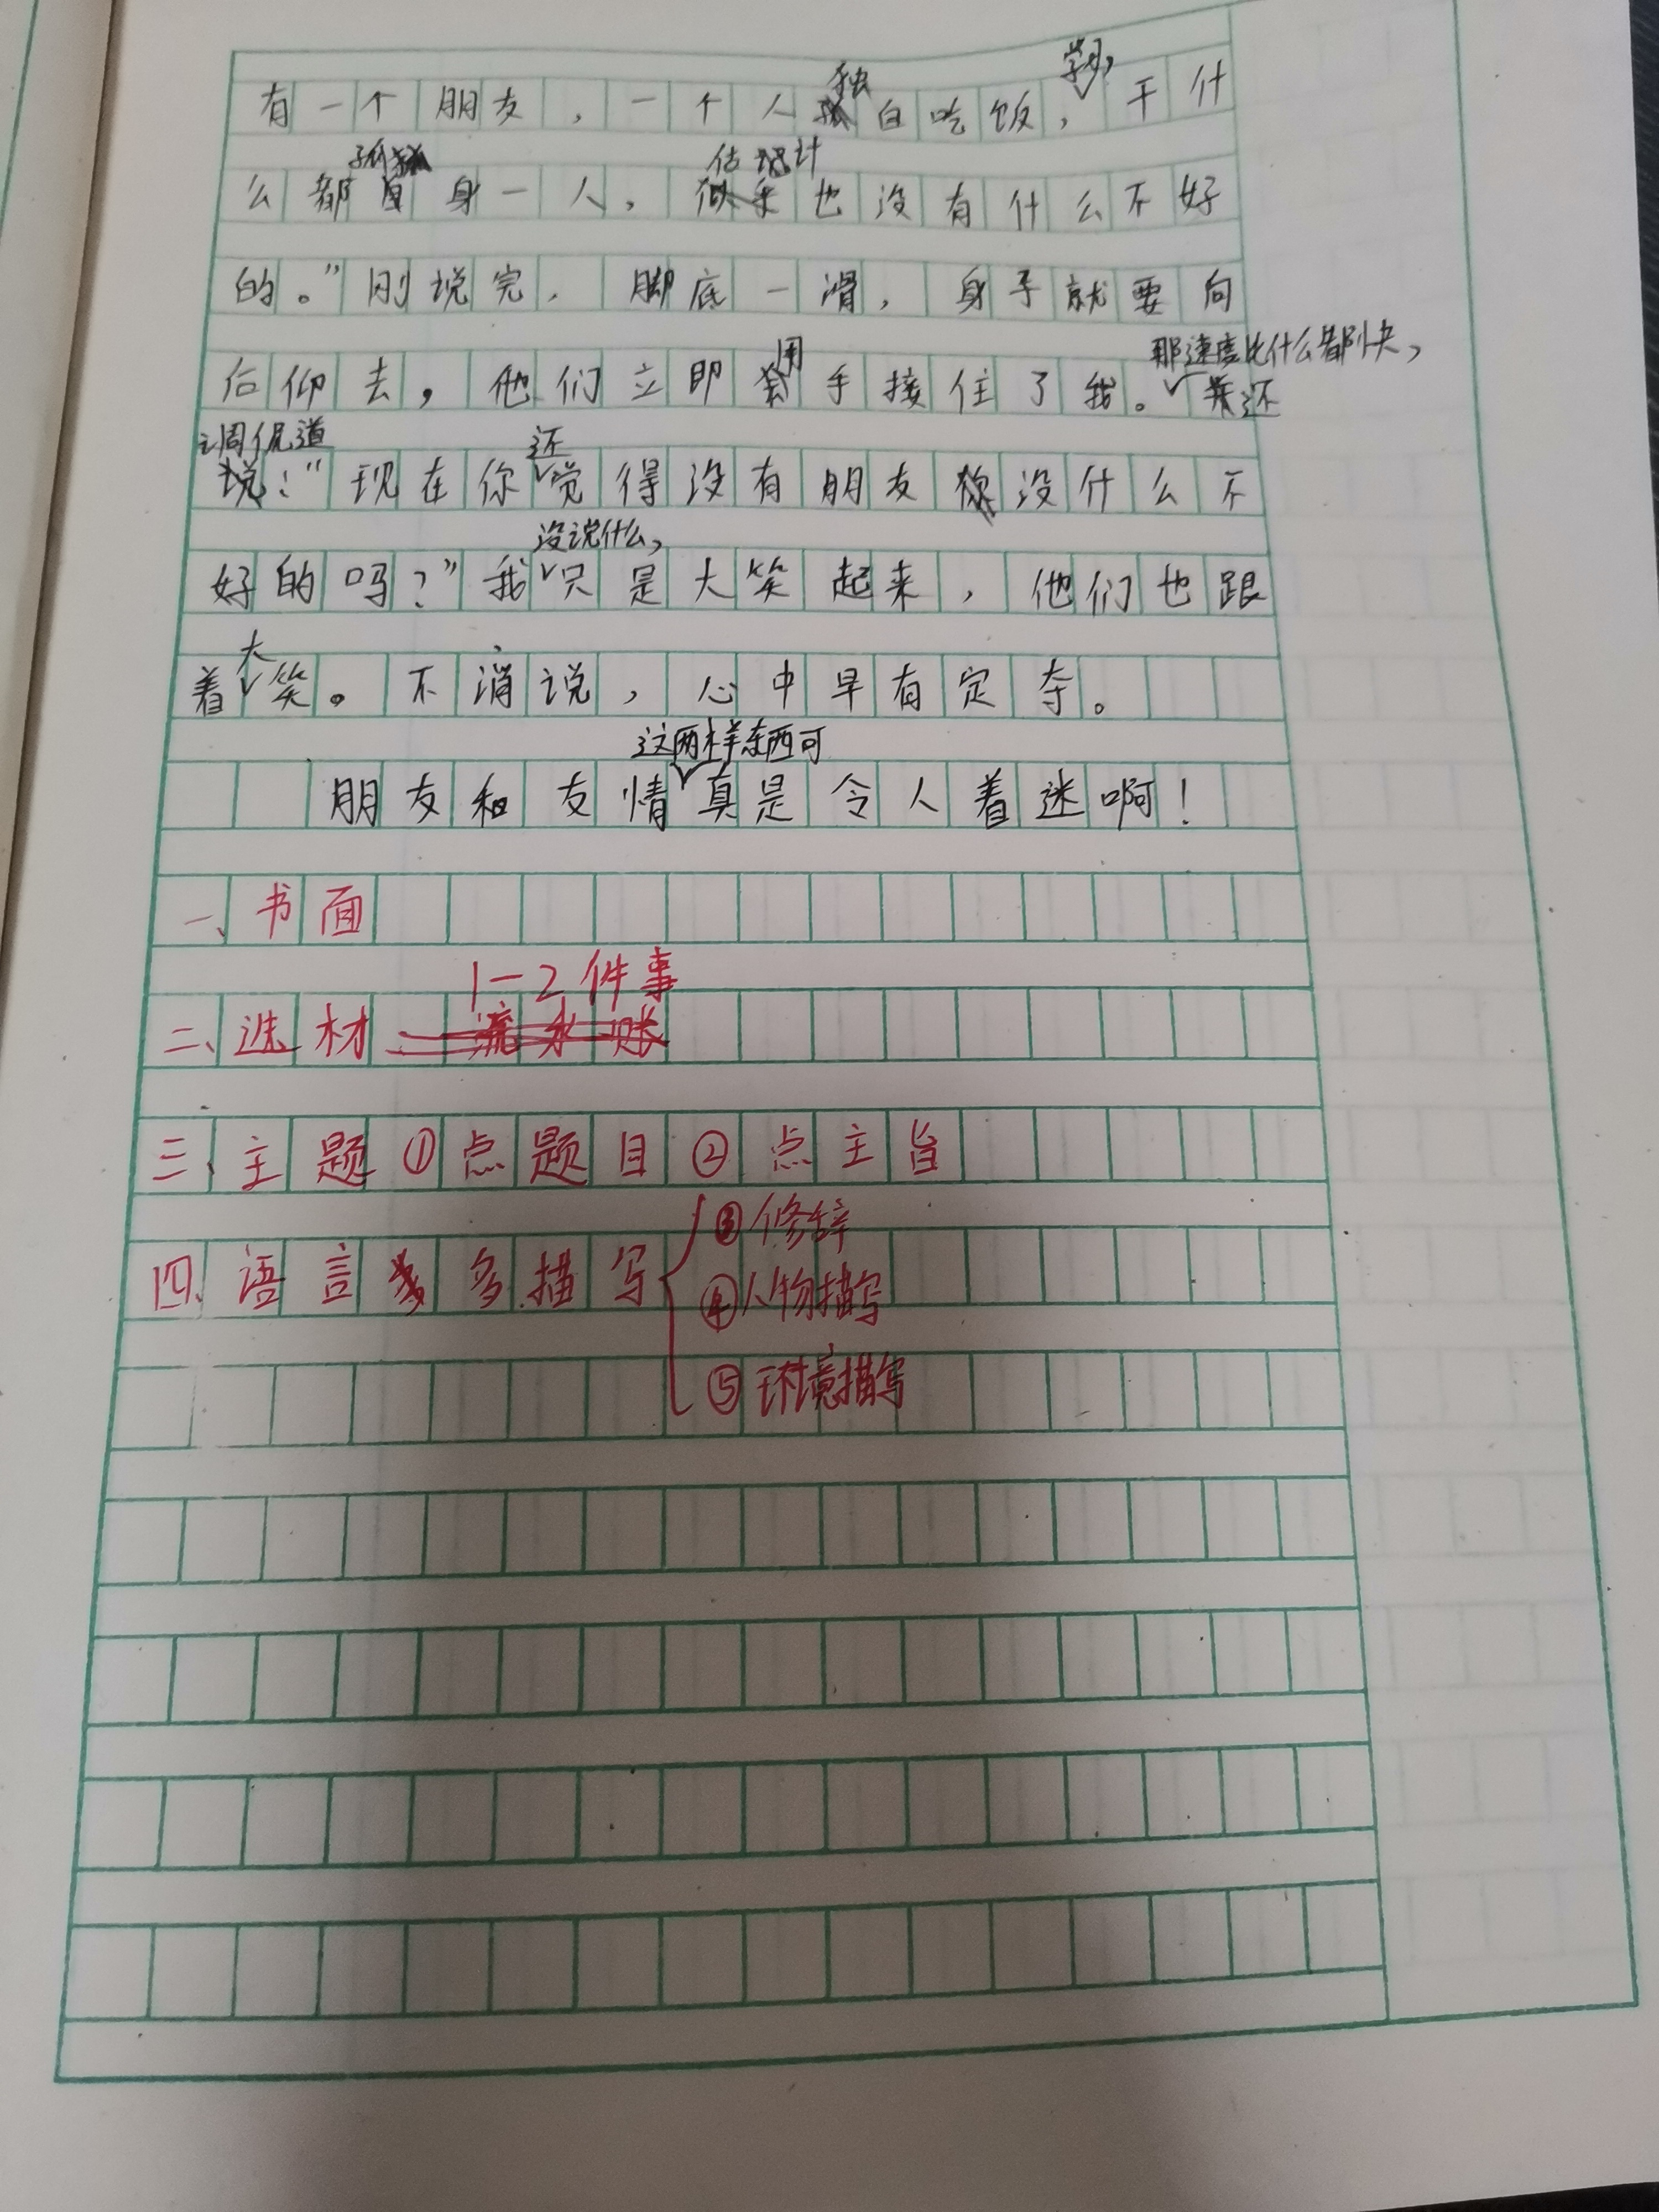 有一个朋友，一个人独自吃饭，学习，干什
么都孤身一人，估计也没有什么不好
的。”刚说完，脚底一滑，身子就要向
后仰去，他们立即用手接住了我。那速度比什么都快，还
调侃道：“现在你还觉得没有朋友没什么不
好的吗？”我没说什么，只是大笑起来，他们也跟
着大笑。不消说，心中早有定夺。
朋友和友情这两样东西可真是令人着迷啊！
一、书面
二、选材 流水账 1-2件事
三、主题①点题目②点主旨
四、语言多描写
③修辞
④人物描写
⑤环境描写